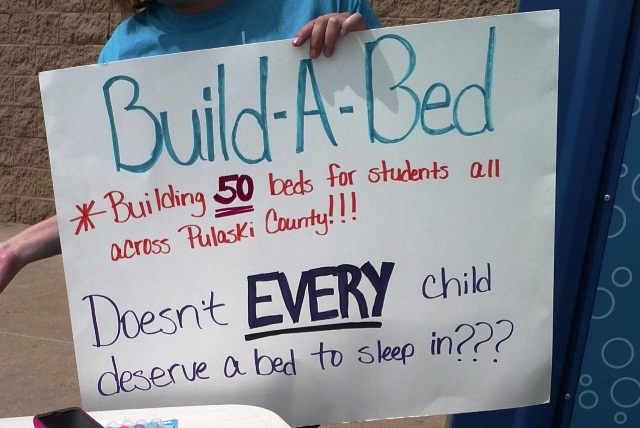 Build-A-Bed
* Building 50 beds for students all
across Pulaski County!!!
Doesn't EVERY child
deserve a bed to sleep in???